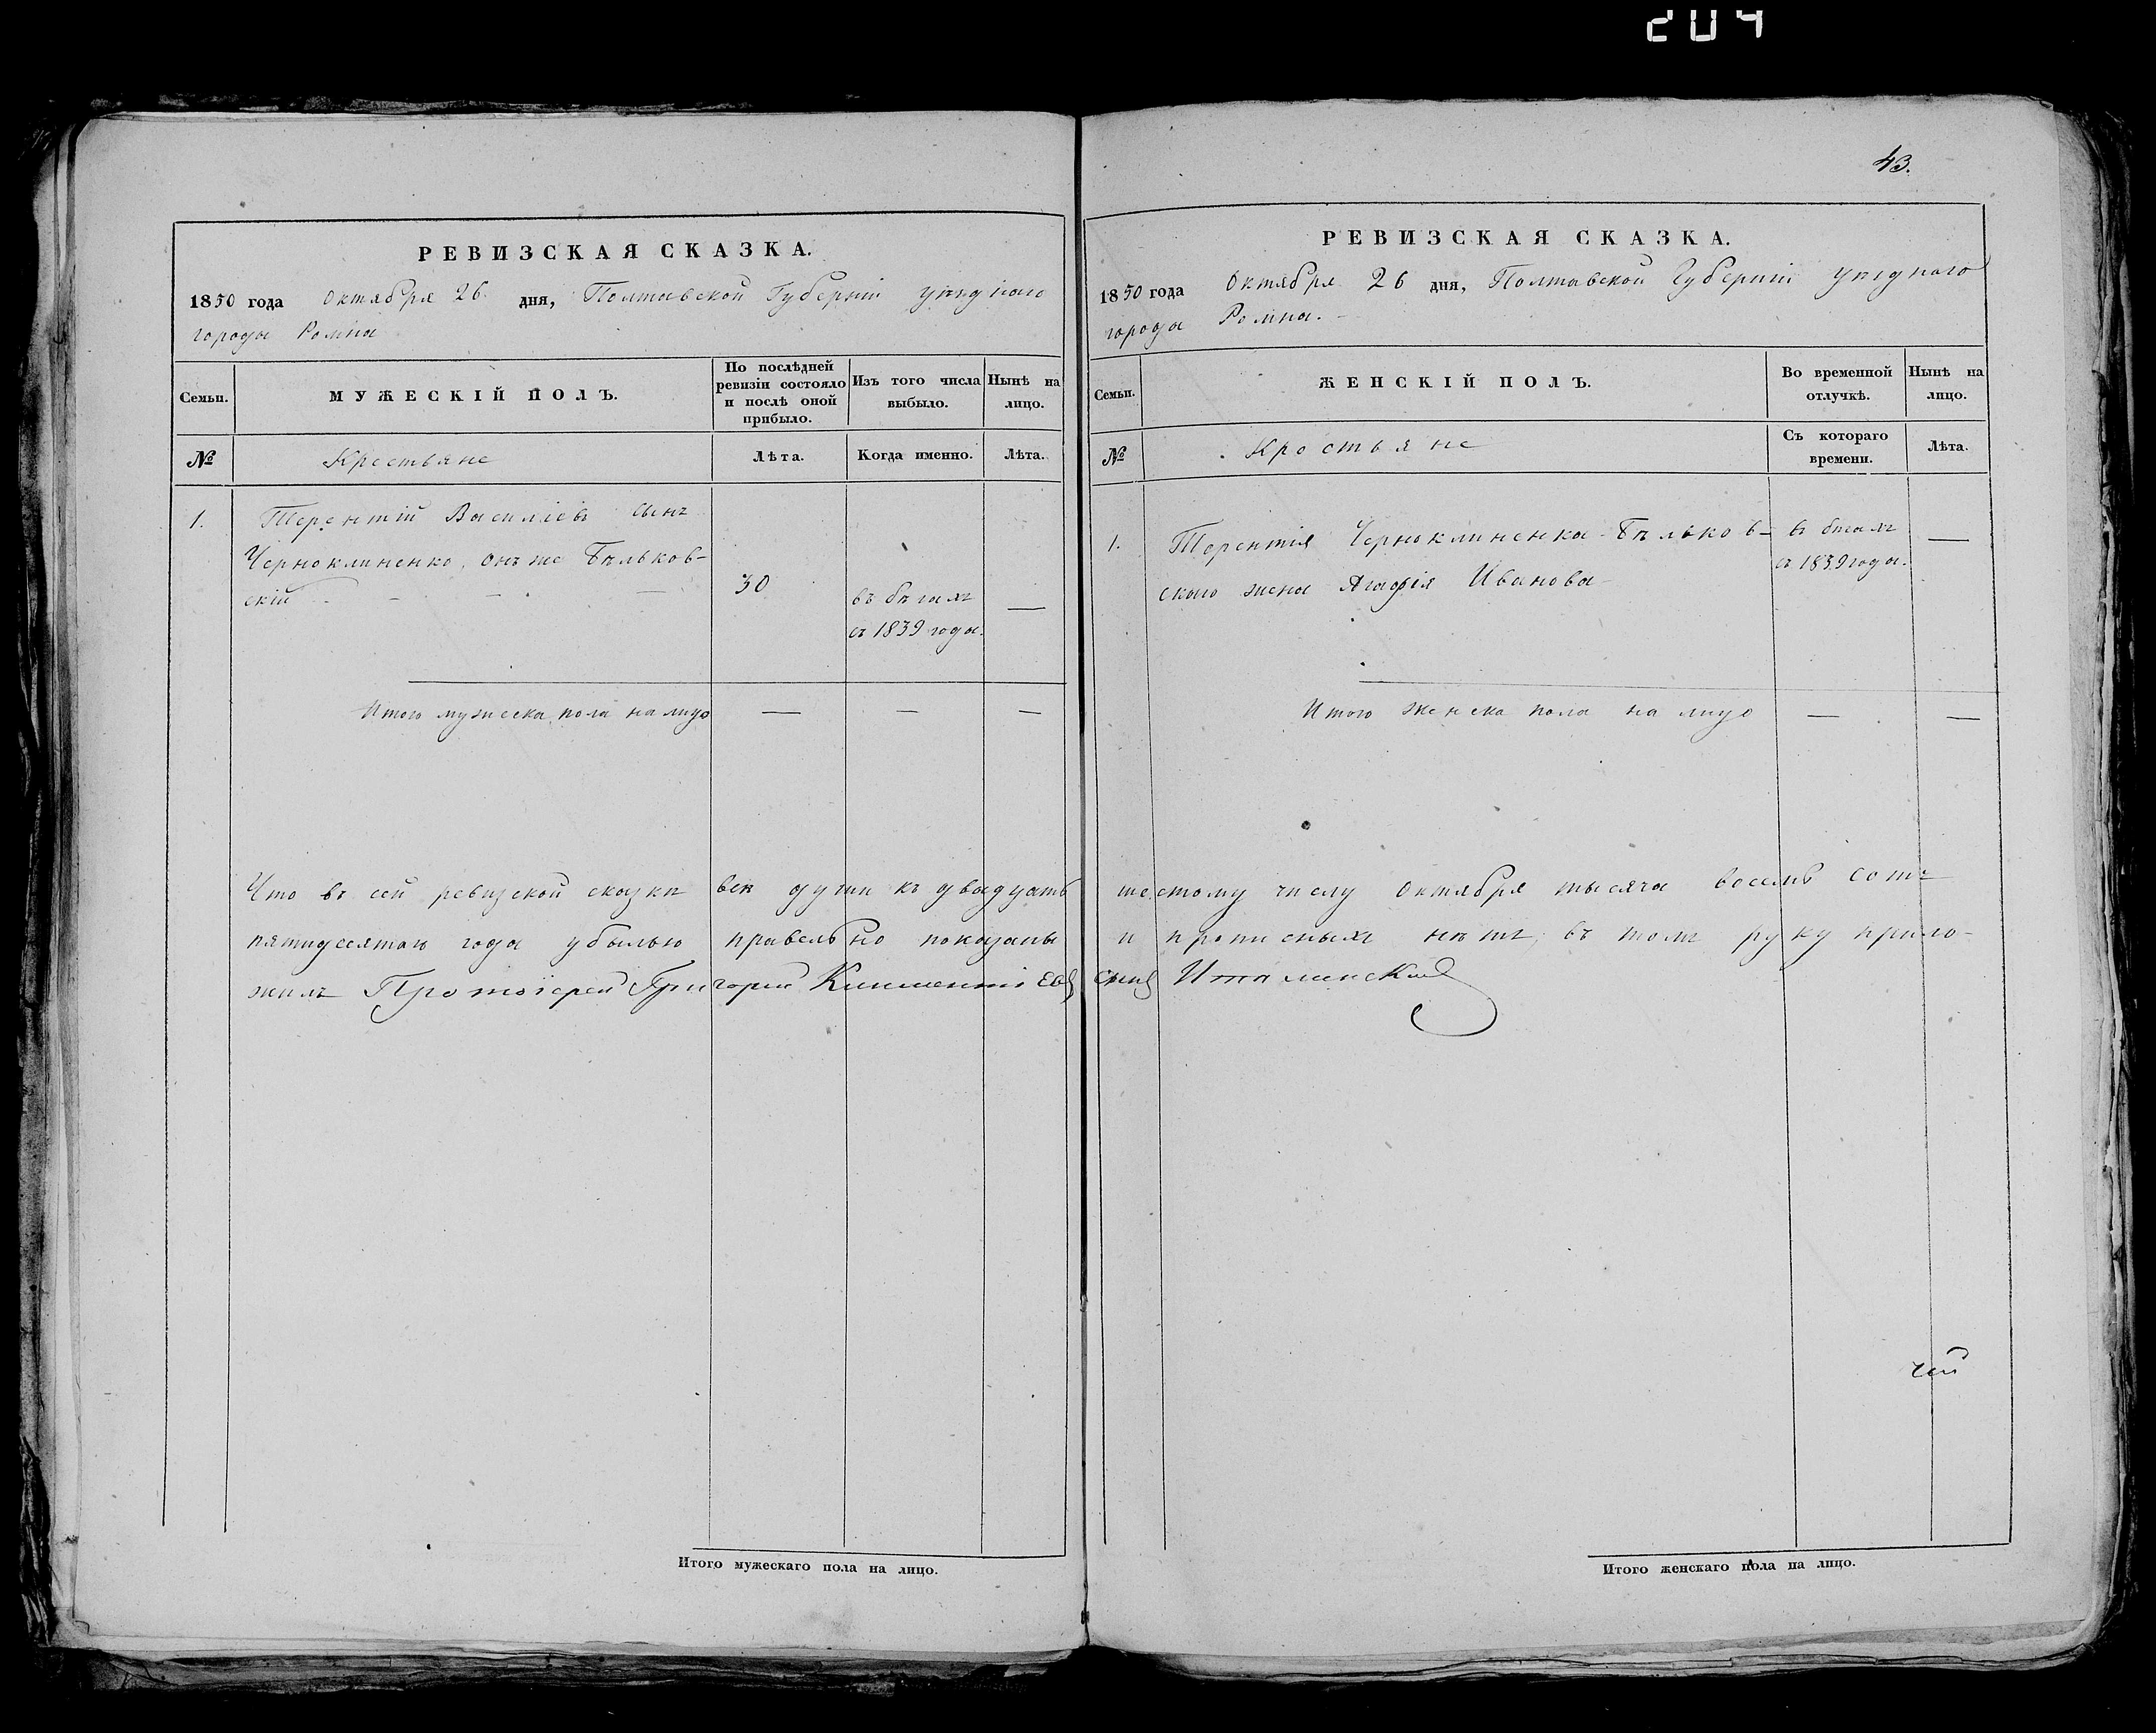 204
43.
РЕВИЗСКАЯ СКАЗКА.
1850 года Октября 26 дня, Полтавской Губерніи уѣзднаго
города Ромна
Семьи.
МУЖЕСКІЙ ПОЛЪ.
По послѣдней ревизіи состояло и послѣ оной прибыло.
Изъ того числа выбыло.
Нынѣ на лицо.
№
Крестьяне
Лѣта.
Когда именно.
Лѣта.
1. Терентій Василіевъ сынъ
Черноклиненко, онъ же Бѣльков-
скій — — — 30
въ бѣгахъ —
съ 1839 года.
Итого мужеска пола на лицо — — —
РЕВИЗСКАЯ СКАЗКА.
1850 года Октября 26 дня, Полтавской Губерніи уѣзднаго
города Ромна. —
Семьи.
ЖЕНСКІЙ ПОЛЪ.
Во временной отлучкѣ.
Нынѣ на лицо.
№
Крестьяне
Съ котораго времени.
Лѣта.
1. Терентія Черноклиненка-Бѣльков- въ бѣгахъ —
скаго жена Агафія Иванова съ 1839 года.
Итого женска пола на лицо — —
Что въ сей ревизской сказкѣ всѣ души къ двадцать шестому числу Октября тысяча восемь сотъ
пятидесятаго года убылью правельно показаны и прописныхъ нѣтъ, въ томъ руку прило-
жилъ Протоіерей Григорій
чей
Итого мужескаго пола на лицо.
Итого женскаго пола на лицо.